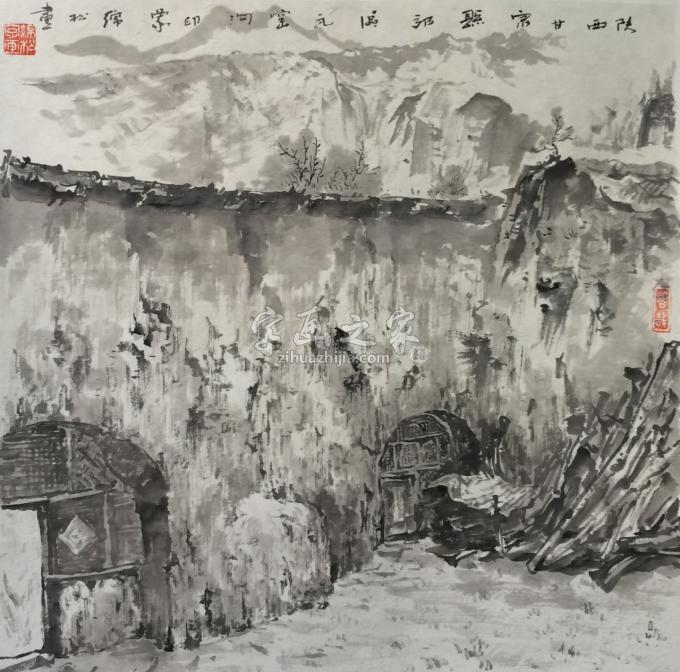 陕西甘泉縣郊區瓦窑洞印象綿松畫
字画之家
zihuazhijia.com